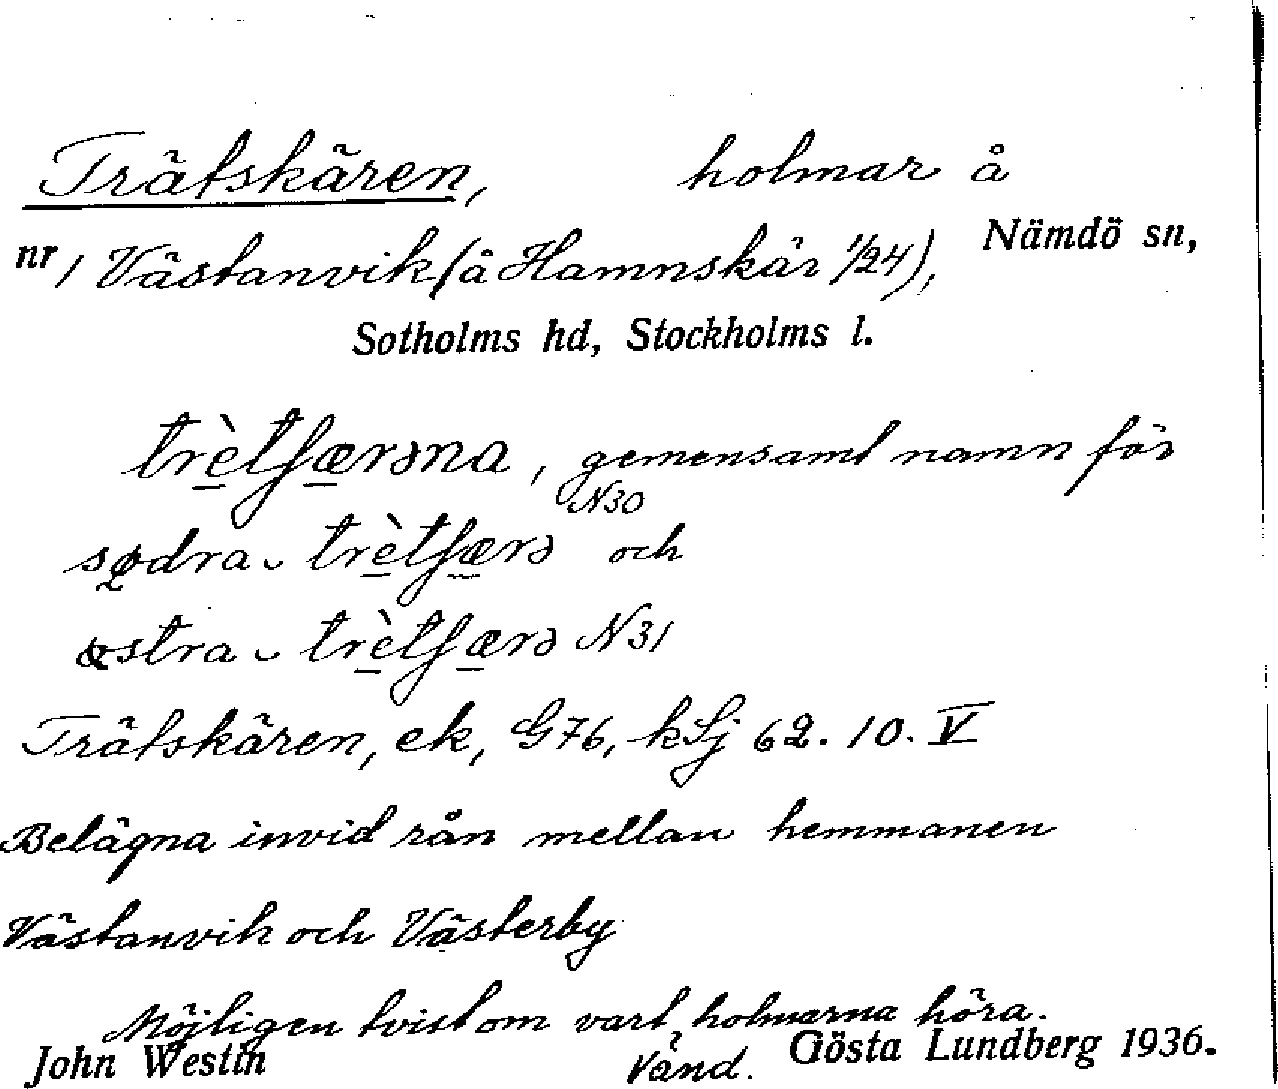 Trätskären, holmar å
nr 1 Västanvik (å Hamnskär 1/24), Nämdö sn,
Sotholms hd, Stockholms l.
trètʃærəna, gemensamt namn för
sødra ᴗ trètʃærə N30 och
østra ᴗ trètʃærə N31
Trätskären, ek, G76, kSj 62. 10. V
Belägna invid rån mellan hemmanen
Västanvik och Västerby
Möjligen tvist om vart holmarna höra.
John Westin Vänd. Gösta Lundberg 1936.